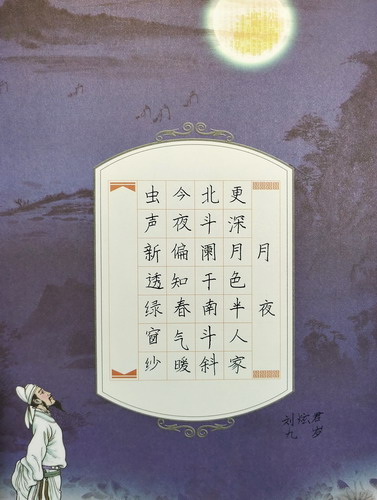 月夜
更深月色半人家
北斗阑干南斗斜
今夜偏知春气暖
虫声新透绿窗纱
刘炫君
九岁